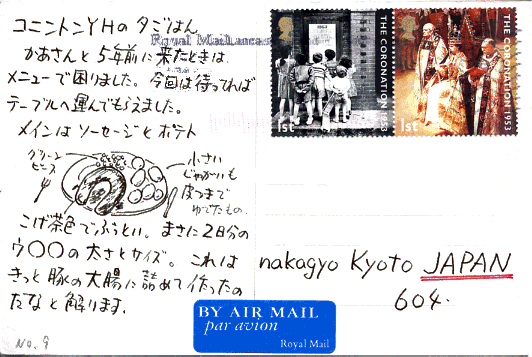 コニントンYHの夕ごはん
かあさんと5年前に来たときは、
メニューで困りました。今回は待ってれば
テーブルへ運んでもらえました。
メインはソーセージとポテト
グリーン
ピース
小さい
じゃがいも
皮つきで
ゆでたもの。
こげ茶色でぶっとい。まさに2日分の
ウ〇〇の太さとサイズ。これは
きっと豚の大腸に詰めて作ったの
だなと解ります。
No. 9
Royal Mail
THE CORONATION
1953
1st
THE CORONATION
1953
1st
nakagyo Kyoto JAPAN
604.
BY AIR MAIL
par avion
Royal Mail